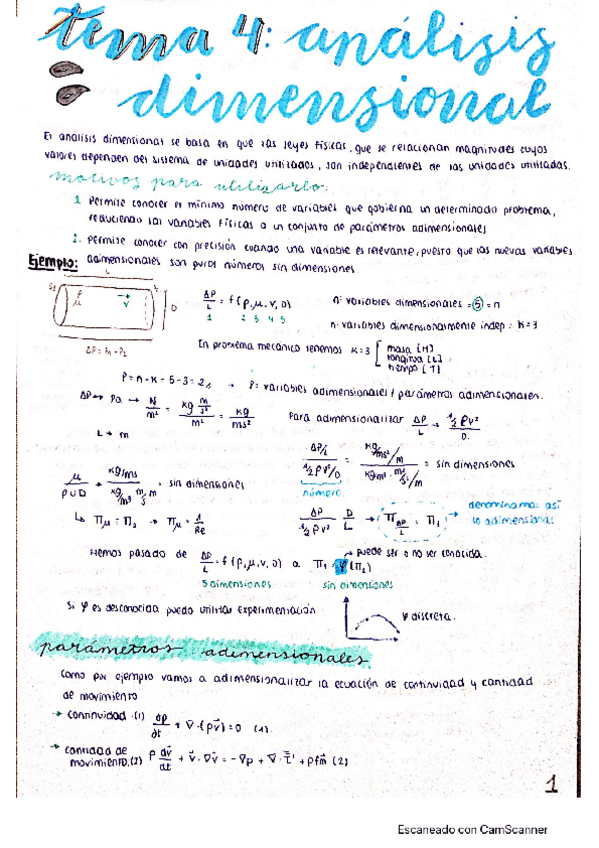 tema 4: análisis
dimensional
El análisis dimensional se basa en que las leyes físicas, que se relacionan magnitudes cuyos
valores dependen del sistema de unidades utilizados, son independientes de las unidades utilizadas.
motivos para utilizarlo:
1. Permite conocer el mínimo número de variables que gobierna un determinado problema,
reduciendo las variables físicas a un conjunto de parámetros adimensionales
2. Permite conocer con precisión cuando una variable es relevante, puesto que las nuevas variables
adimensionales son puros números sin dimensiones.
Ejemplo:
L
ρ
μ
v
D
ΔP = P1 - P2
ΔP/L = f(ρ, μ, v, D)
1 2 3 4 5
nº variables dimensionales = 5 = n
nº variables dimensionalmente indep: K = 3
En problema mecánico tenemos K = 3 [ masa [M]
longitud [L]
tiempo [T]
P = n - K = 5 - 3 = 2 → P = variables adimensionales / parámetros adimensionales.
ΔP → Pa → N/m² = kg m/s² / m² = kg/ms²
Para adimensionalizar ΔP/L → 1/2 ρv²/D
L → m
ΔP/L / 1/2 ρv²/D = kg/ms²/m / = sin dimensiones
número
μ/ρUD → kg/ms / kg/m³ m/s m = sin dimensiones
↳ Πμ = Π2 → Πμ = 1/Re
ΔP / 1/2 ρv² D/L → Π ΔP/L = Π1 → denominamos así
lo adimensional
Hemos pasado de ΔP/L = f(ρ, μ, v, D) a Π1 = φ(Π2)
puede ser o no ser conocida.
5 dimensiones sin dimensiones
Si φ es desconocida puedo utilizar experimentación
φ discreta.
parámetros adimensionales
Como por ejemplo vamos a adimensionalizar la ecuación de continuidad y cantidad
de movimiento
→ continuidad (1) ∂ρ/∂t + ∇·(ρv⃗) = 0 (1)
→ cantidad de
movimiento (2) ρ ∂v⃗/∂t + v⃗·∇v⃗ = -∇p + ∇·τ' + ρfm (2)
1
Escaneado con CamScanner